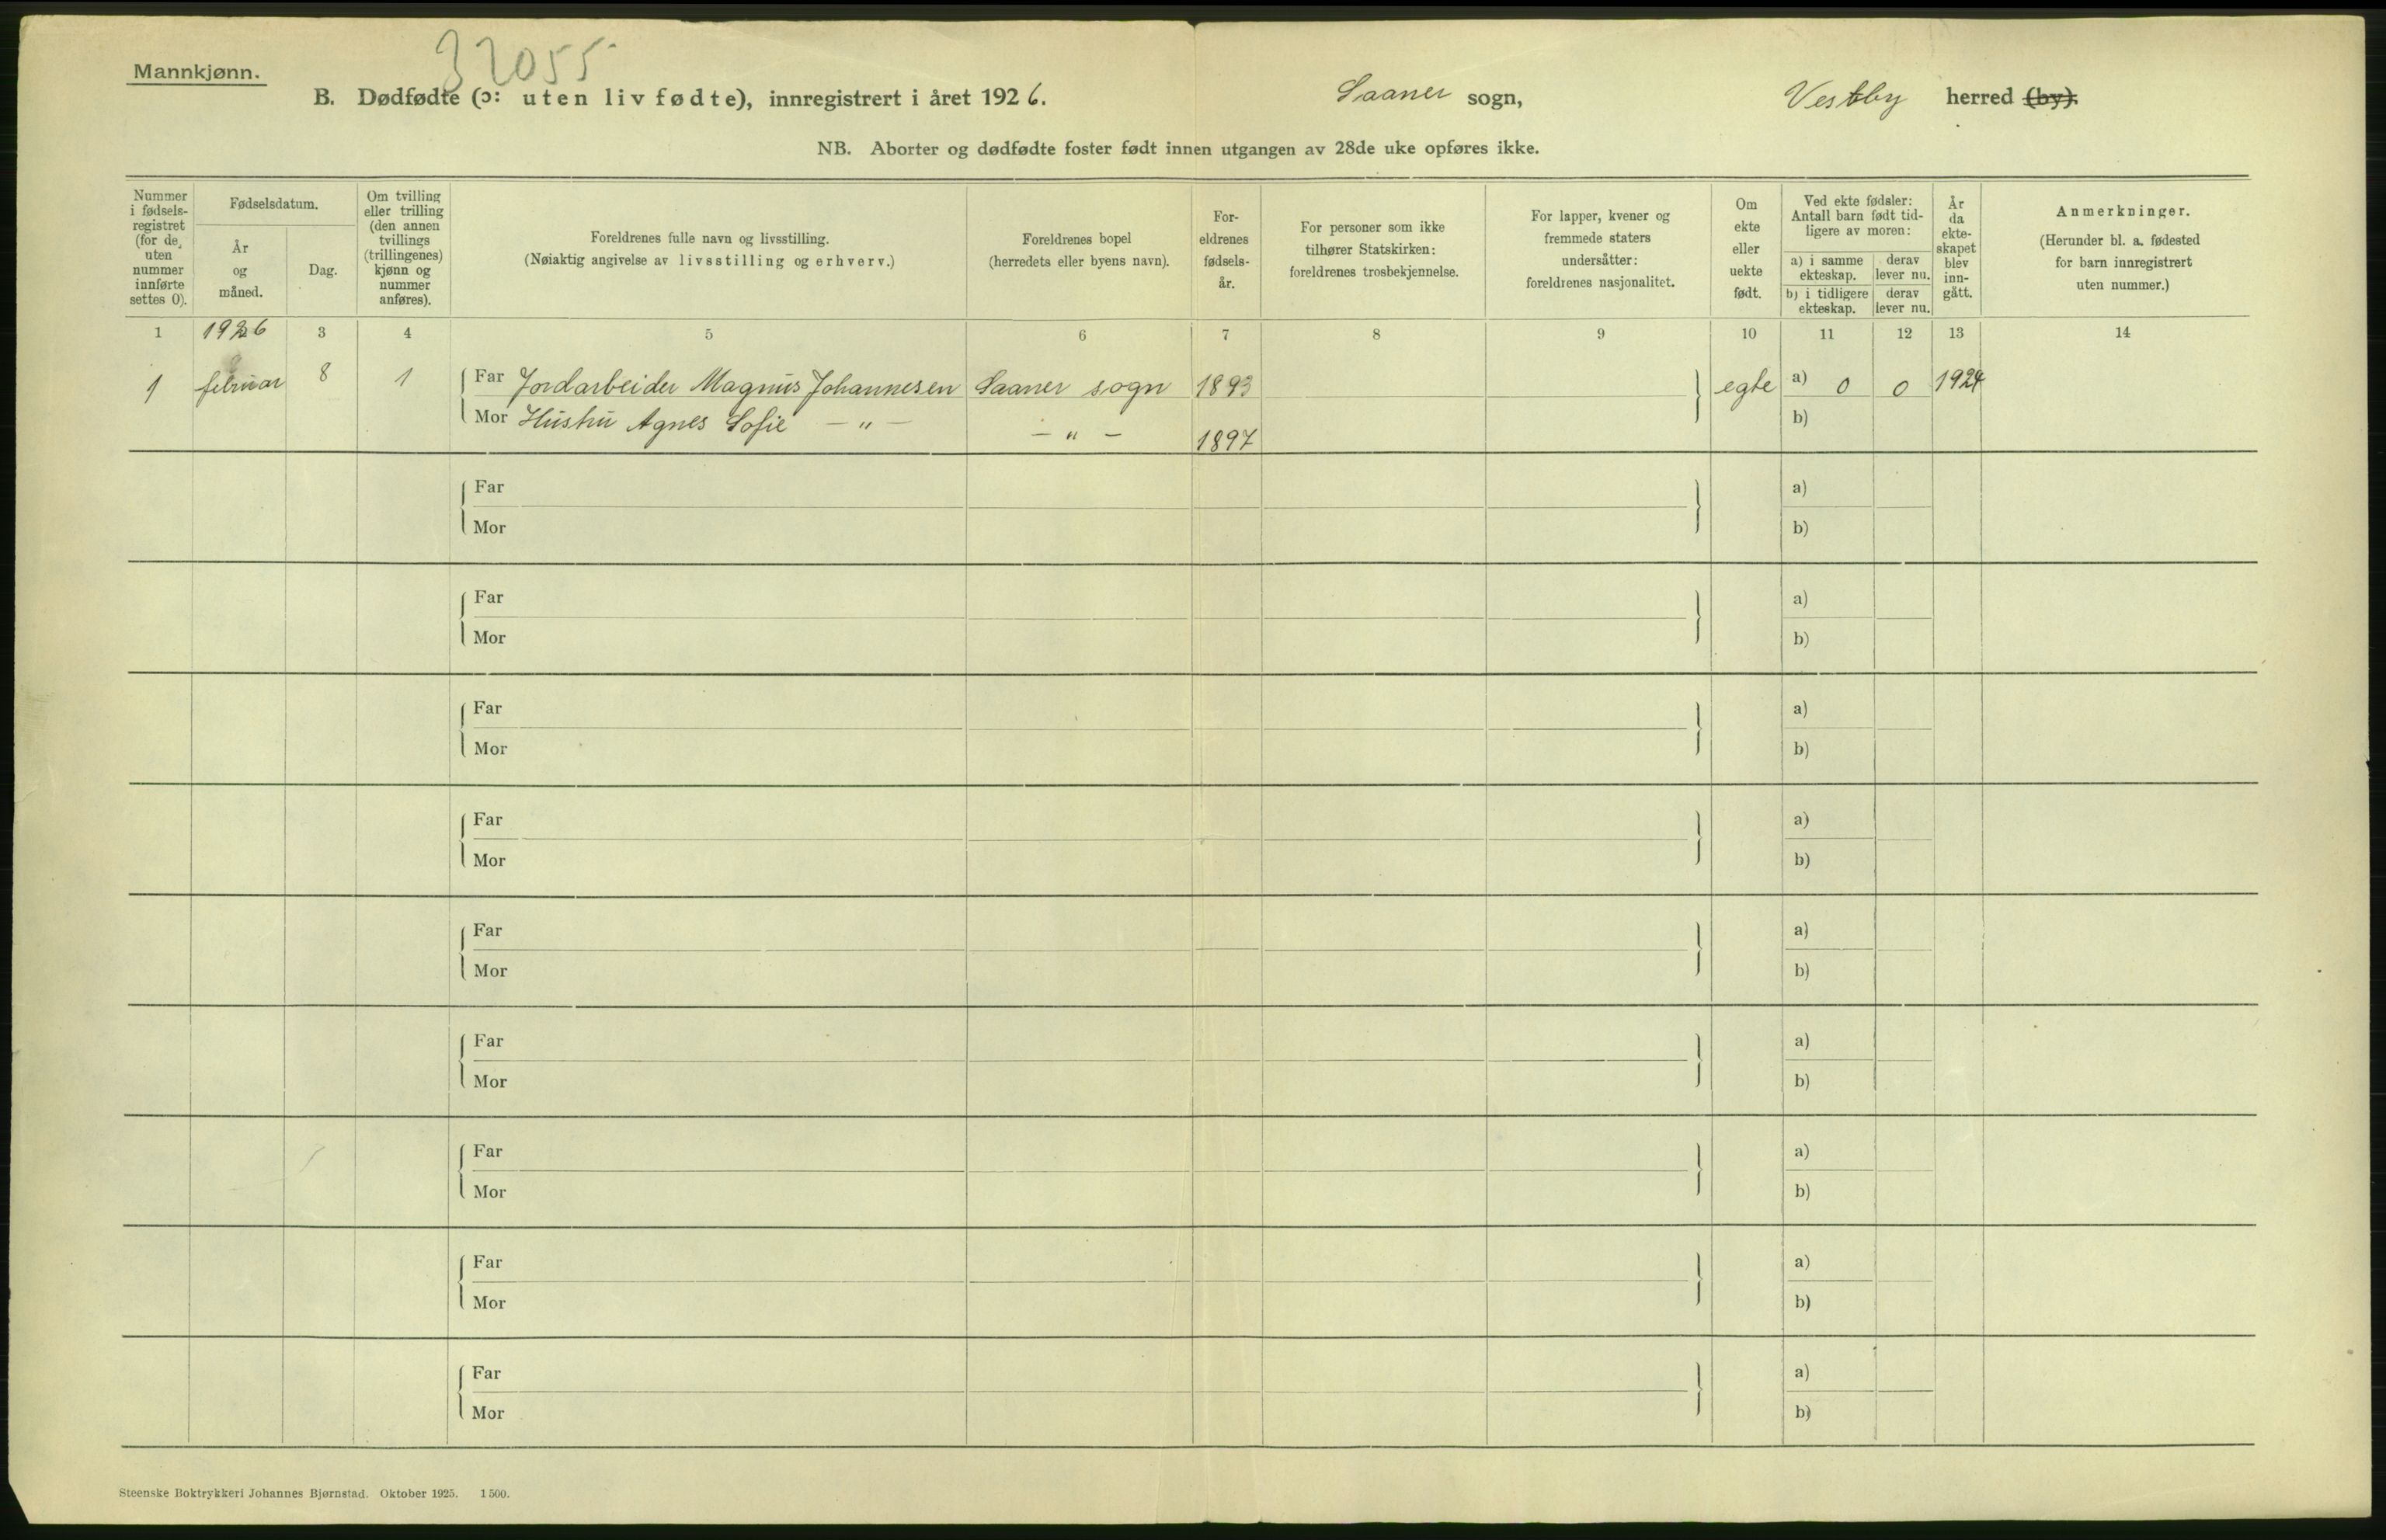 Mannkjønn.
32055
B. Dødfødte (ɔ: uten liv fødte), innregistrert i året 1926. Saaner sogn, Vestby herred (by).
NB. Aborter og dødfødte foster født innen utgangen av 28de uke opføres ikke.
Nummer i fødsels-registret (for de uten nummer innførte settes 0).
Fødselsdatum.
År og måned.
Dag.
Om tvilling eller trilling (den annen tvillings (trillingenes) kjønn og nummer anføres).
Foreldrenes fulle navn og livsstilling.
(Nøiaktig angivelse av livsstilling og erhverv.)
Foreldrenes bopel
(herredets eller byens navn).
For-eldrenes fødsels-år.
For personer som ikke tilhører Statskirken: foreldrenes trosbekjennelse.
For lapper, kvener og fremmede staters undersåtter: foreldrenes nasjonalitet.
Om ekte eller uekte født.
Ved ekte fødsler: Antall barn født tid-ligere av moren:
a) i samme ekteskap.
derav lever nu.
b) i tidligere ekteskap.
derav lever nu.
År da ekte-skapet blev inn-gått.
Anmerkninger.
(Herunder bl. a. fødested for barn innregistrert uten nummer.)
1 1926 3 4 5 6 7 8 9 10 11 12 13 14
1 februar 8 1 Far Jordarbeider Magnus Johannesen Saaner sogn 1893 egte a) 0 0 1924
Mor Hustru Agnes Sofie — " — — " — 1897 b)
Far a)
Mor b)
Far a)
Mor b)
Far a)
Mor b)
Far a)
Mor b)
Far a)
Mor b)
Far a)
Mor b)
Far a)
Mor b)
Far a)
Mor b)
Far a)
Mor b)
Steenske Boktrykkeri Johannes Bjørnstad. Oktober 1925. 1500.